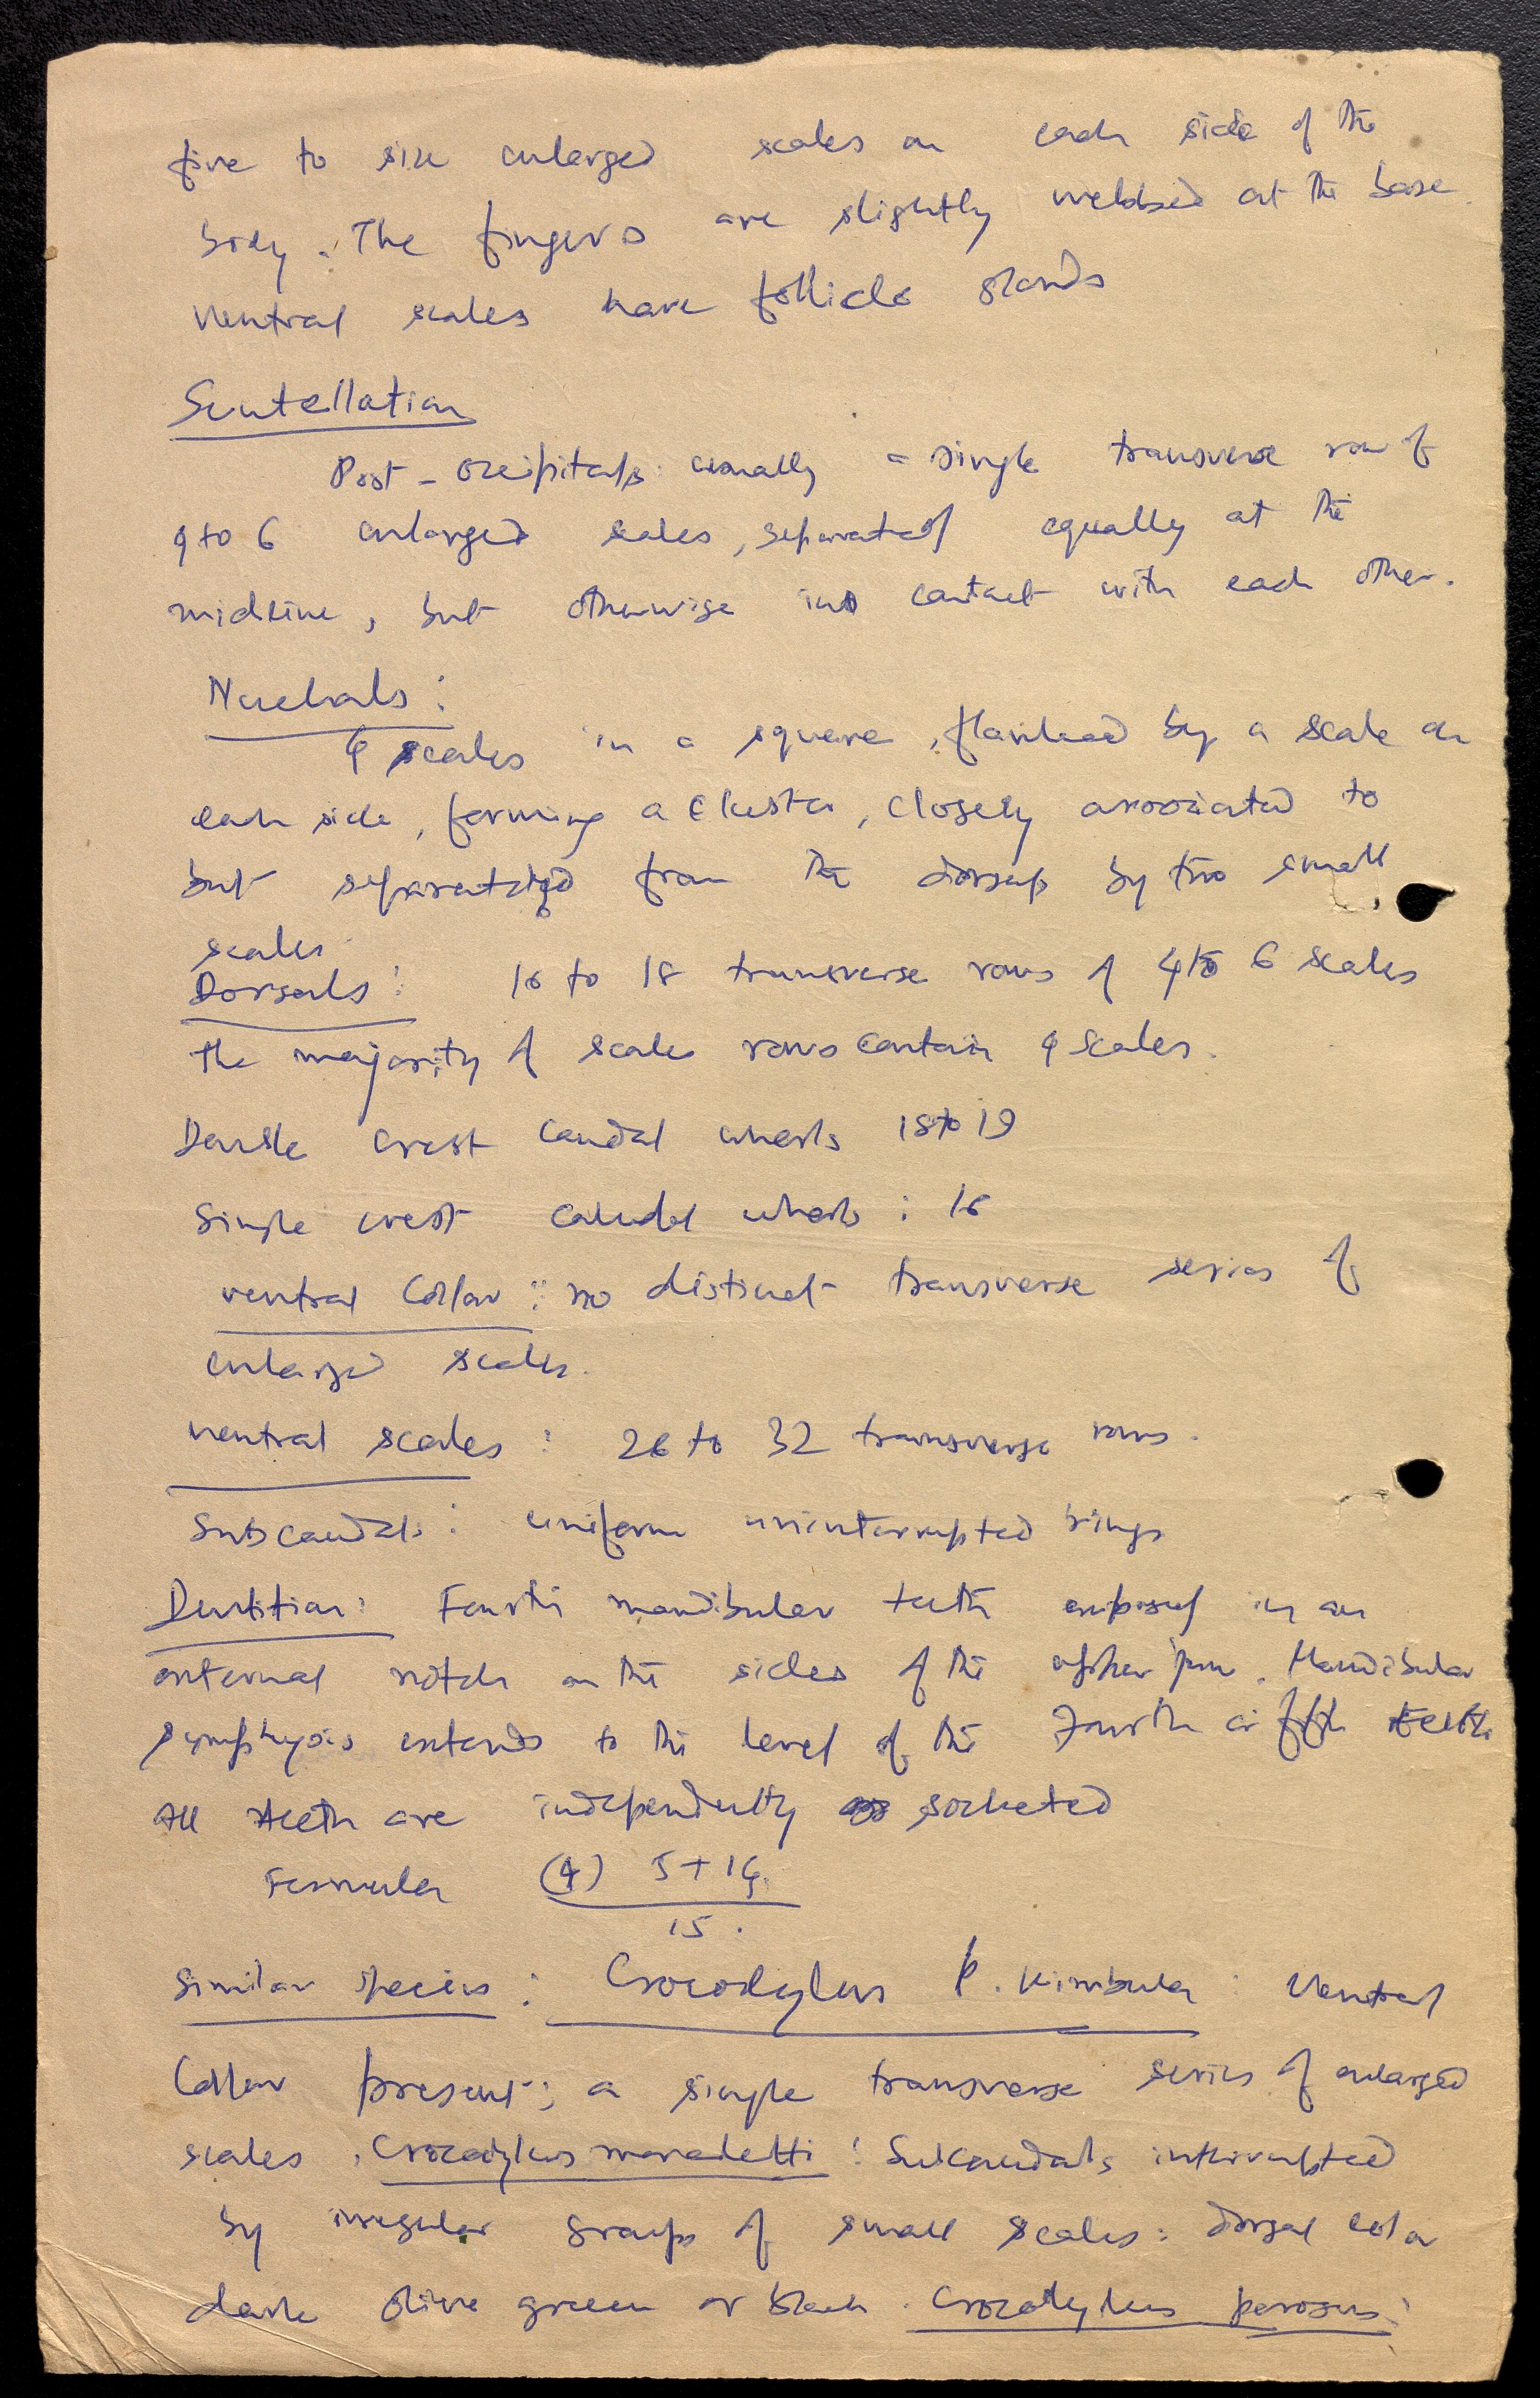 five to six enlarged scales on each side of the
body. The fingers are slightly webbed at the base.
Ventral scales have follicle glands
Scutellation
Post-occipitals: usually a single transverse row of
4 to 6 enlarged scales, separated equally at the
midline, but otherwise in contact with each other.
Nuchals:
4 scales in a square, flanked by a scale on
each side, forming a cluster, closely associated to
but separated from the dorsals by two small
scales
Dorsals: 16 to 18 transverse rows of 4 to 6 scales
the majority of scales rows contain 4 scales.
Double crest caudal whorls 18 to 19
Single crest caudal whorls: 18
ventral Collar: no distinct transverse series of
enlarged scales.
ventral scales: 26 to 32 transverse rows.
Subcaudals: uniform uninterrupted rings
Dentition: Fourth mandibular teeth exposed in an
external notch on the sides of the upper jaw. Mandibular
symphysis extends to the level of the Fourth or fifth teeth
All teeth are independently socketed
Formula (4) 5+14
15.
Similar species: Crocodylus p. Kimbula: Ventral
Collar present; a single transverse series of enlarged
scales. Crocodylus moreletti: Subcaudals interrupted
by irregular groups of small scales: dorsal color
dark olive green or black. Crocodylus porosus: